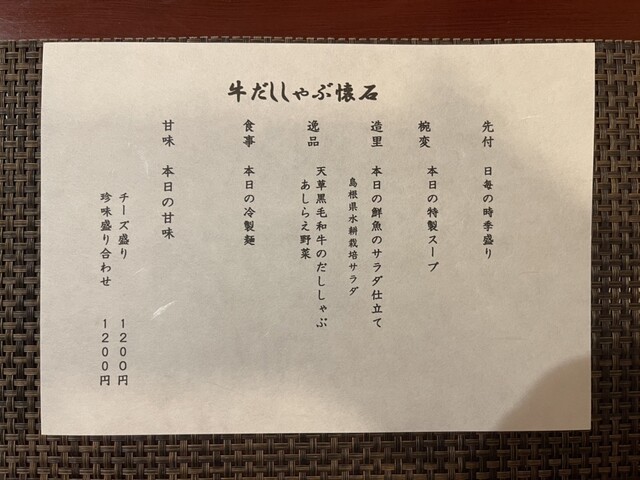 牛だししゃぶ懐石
先付　日毎の時季盛り
椀変　本日の特製スープ
造里　本日の鮮魚のサラダ仕立て
島根県水耕栽培サラダ
逸品　天草黒毛和牛のだししゃぶ
あしらえ野菜
食事　本日の冷製麺
甘味　本日の甘味
チーズ盛り　1200円
珍味盛り合わせ　1200円